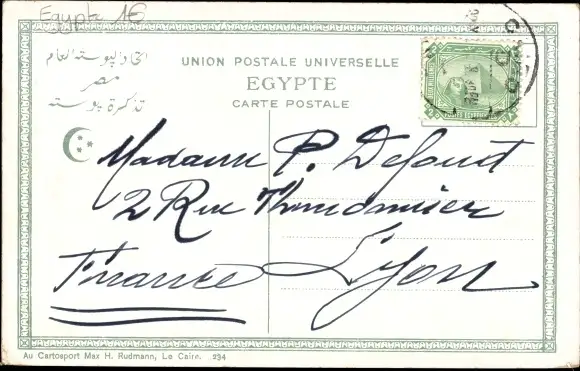 Egypte 16
اتحاد البوسته العام
مصر
تذكرة بوسته
UNION POSTALE UNIVERSELLE
EGYPTE
CARTE POSTALE
Madame P. Defoust
2 Rue
Lyon
France
Au Cartosport Max H. Rudmann, Le Caire. 234